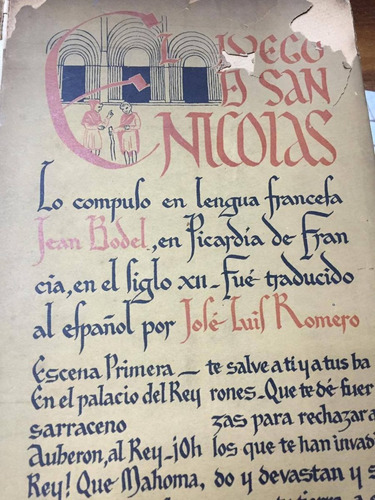 EL IVEGO
DE SAN
NICOLAS
Lo compuso en lengua francesa
Jean Bodel, en Picardia de Fran
cia, en el siglo XII_Fué traducido
al español por José Luis Romero
Escena Primera —
En el palacio del Rey
sarraceno
Auberon, al Rey_¡Oh
Rey! Que Mahoma,
te salve a ti y a tus ba
rones_Que te dé fuer
zas para rechazar a
los que te han invadi
do y devastan y s